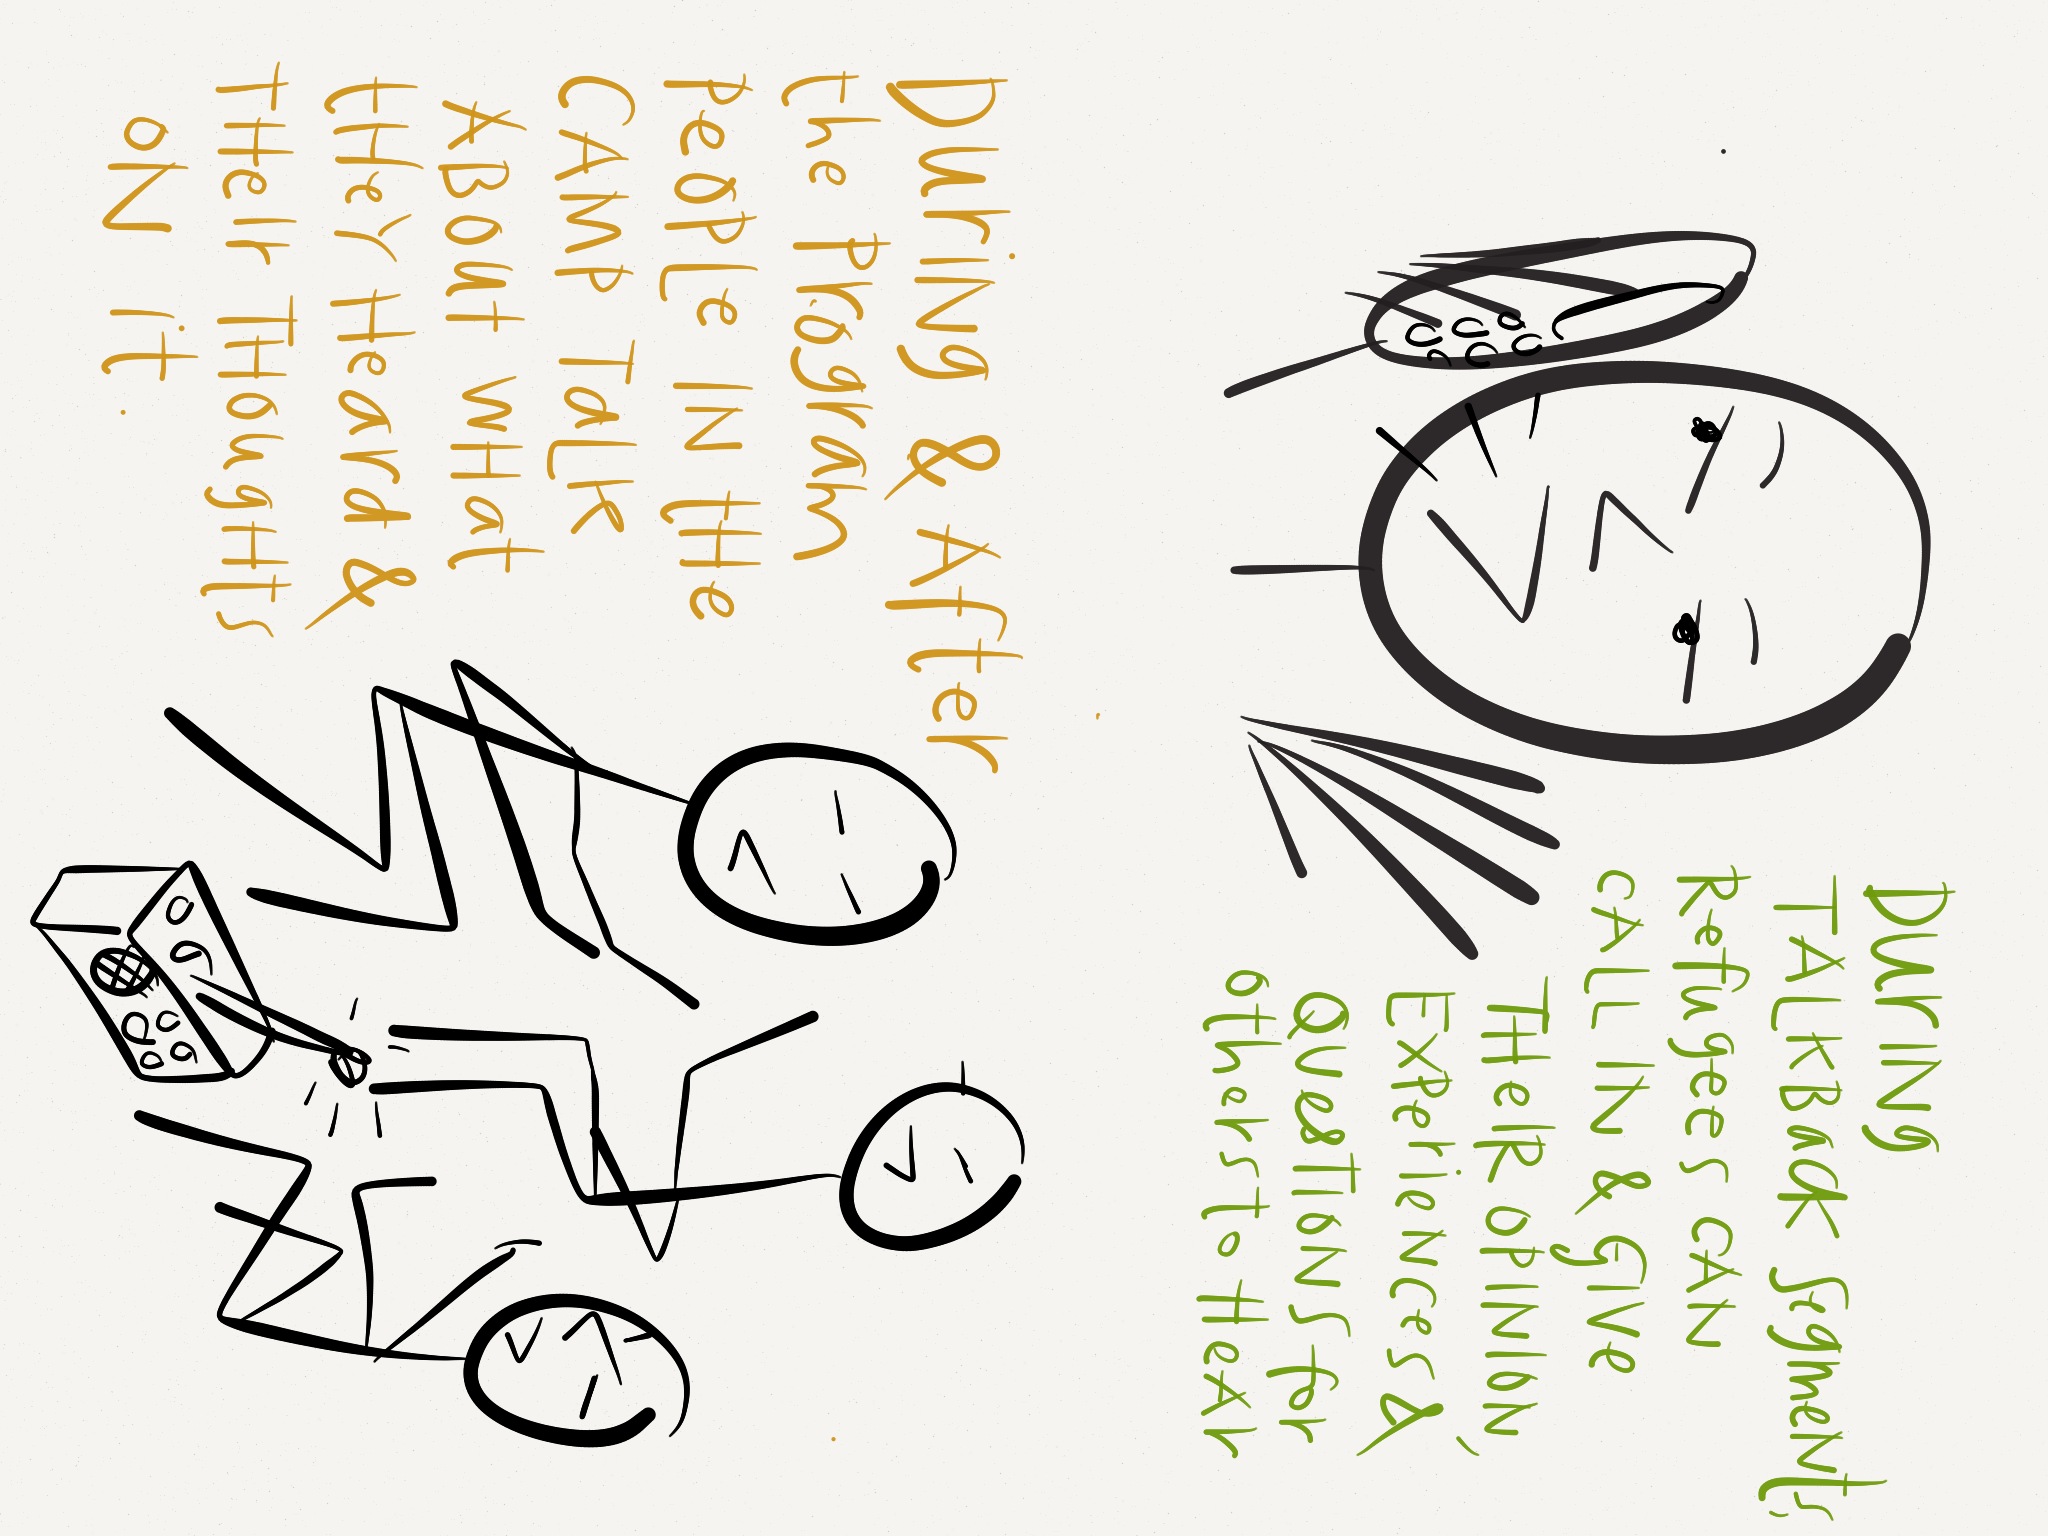 DuriNg
TALKBack Segments
Refugees CAN
CALL IN & GIVe
THeIR OPINION
EXPerieNces &
QuesTIONS for
others to HeAr
DuriNg & After
the Program
PeoPle IN tHe
CAMP TaLK
ABout wHat
tHeY Heard &
THeIr THougHts
oN it.